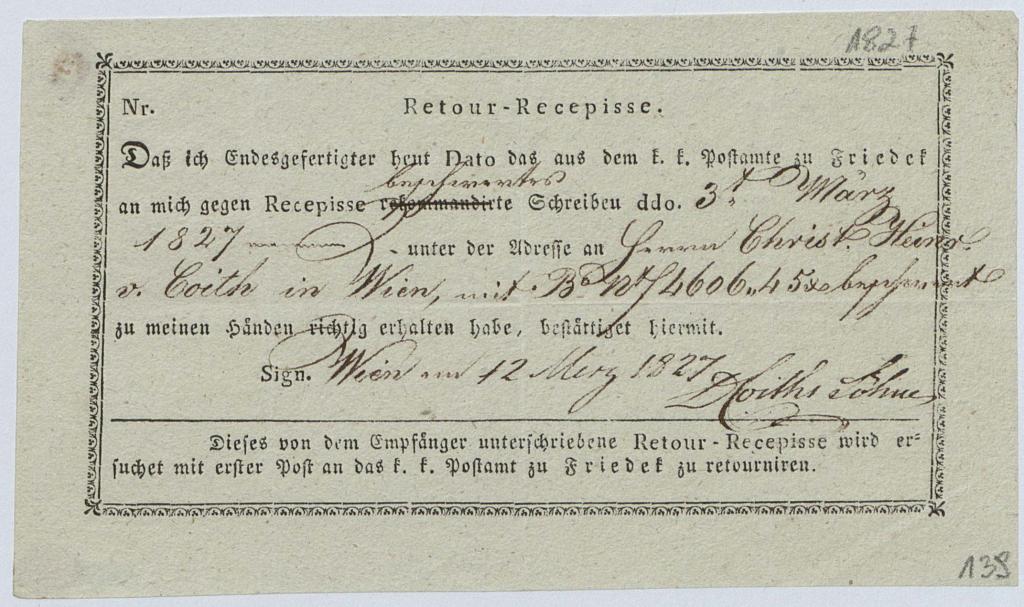 1827
Nr. Retour-Recepisse.
Daß ich Endesgefertigter heut Dato das aus dem k. k. Postamte zu Friedek
beschwertes
an mich gegen Recepisse rekommandirte Schreiben ddo. 3t März
1827 - unter der Adresse an Herrn Christ. Heinr.
v. Coith in Wien, mit 4606 45x beschwert
zu meinen Händen richtig erhalten habe, bestättiget hiermit.
Sign. Wien am 12 März 1827 Coiths Söhne
Dieses von dem Empfänger unterschriebene Retour-Recepisse wird er=
suchet mit erster Post an das k. k. Postamt zu Friedek zu retourniren.
138